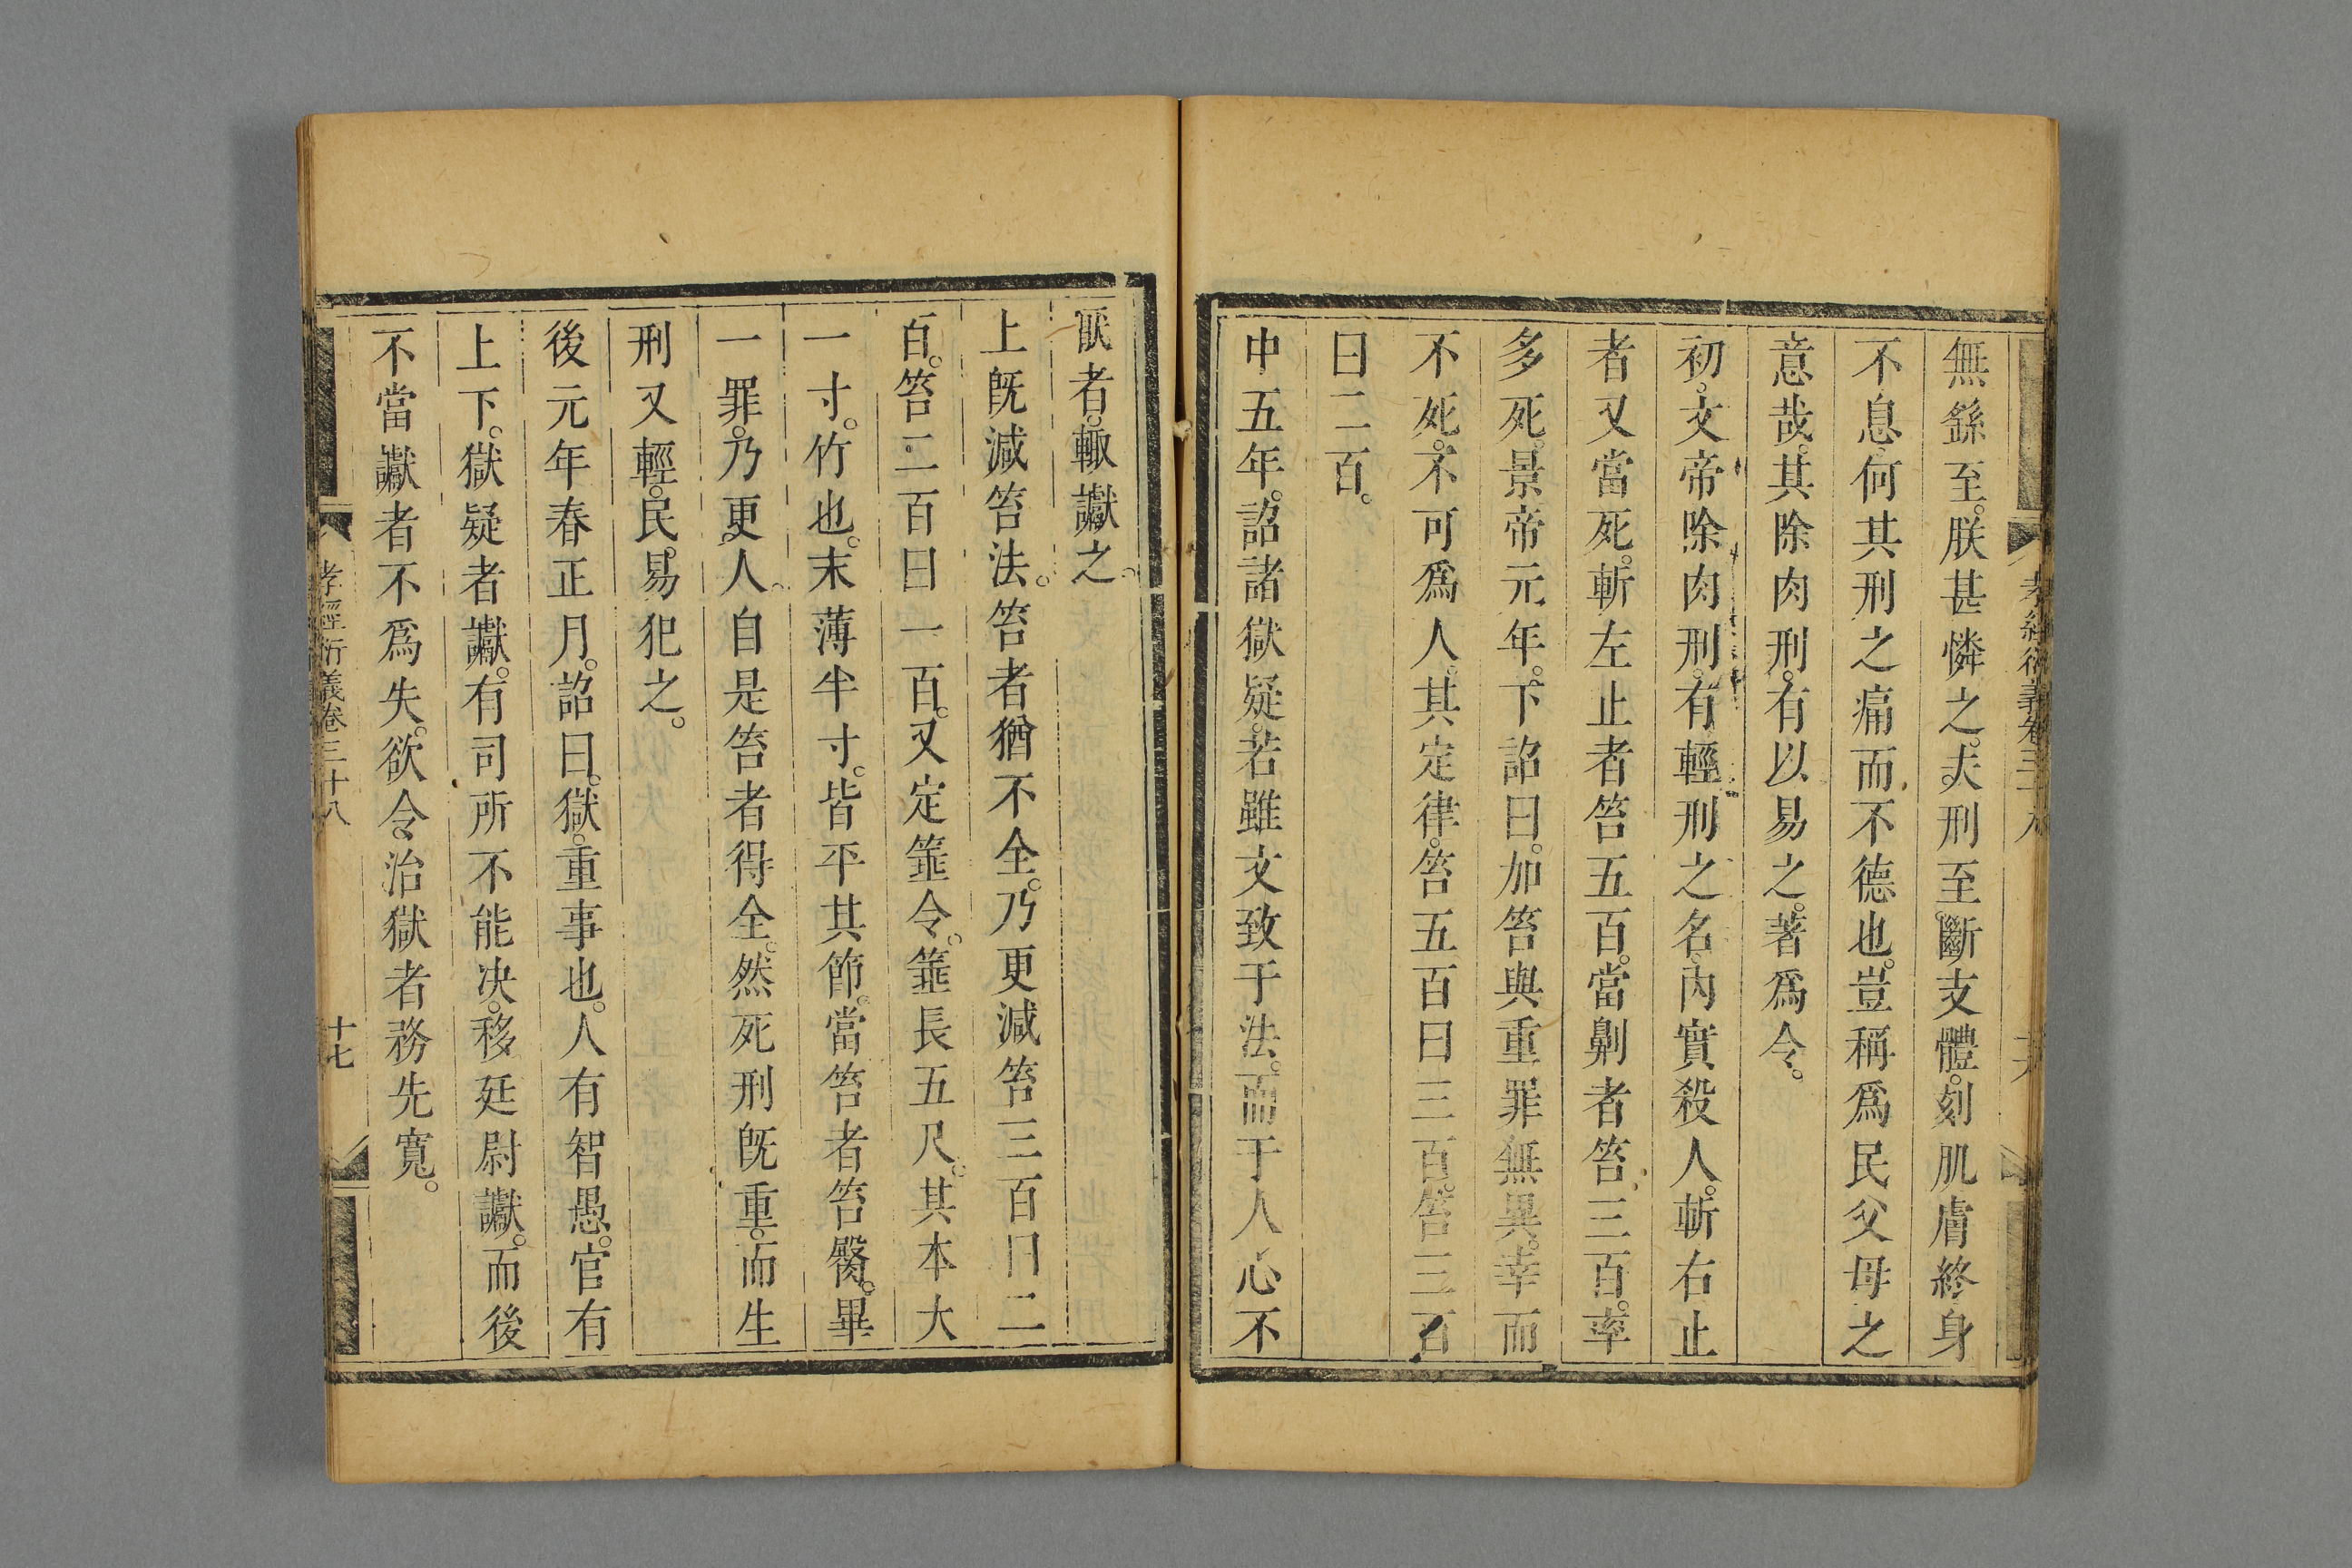 孝經衍義卷三十八
無繇至。朕甚憐之。夫刑至。斷支體。刻肌膚終身
不息。何其刑之痛而不德也。豈稱爲民父母之
意哉。其除肉刑。有以易之。著爲令。
初。文帝除肉刑。有輕刑之名。內實殺人。斬右止
者又當死。斬左止者笞五百。當劓者笞三百。率
多死。景帝元年。下詔曰。加笞與重罪無異。幸而
不死。不可爲人。其定律。笞五百曰三百。笞三百
曰二百。
中五年。詔諸獄疑。若雖文致于法。而于人心不
厭者。輙讞之。
上旣減笞法。笞者猶不全。乃更減笞三百曰二
百。笞二百曰一百。又定箠令。箠長五尺。其本大
一寸。竹也。末薄半寸。皆平其節。當笞者笞臀。畢
一罪。乃更人。自是笞者得全。然死刑旣重。而生
刑又輕。民易犯之。
後元年春正月。詔曰。獄。重事也。人有智愚。官有
上下。獄疑者讞。有司所不能決。移廷尉讞。而後
不當讞者不爲失。欲令治獄者務先寬。
孝經衍義卷三十八
十七